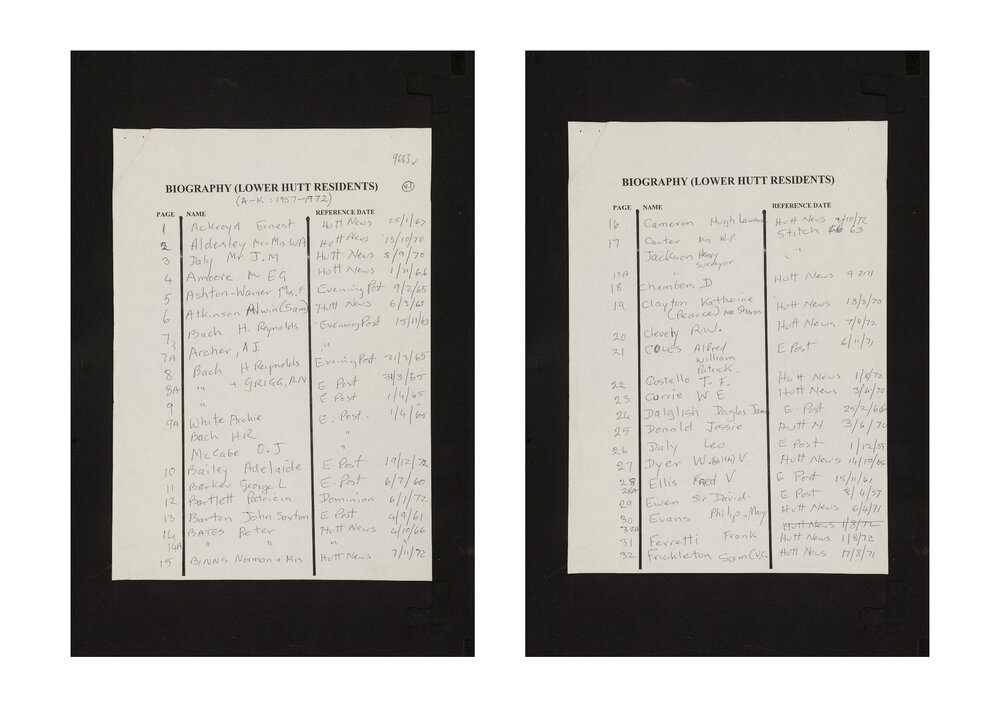 9683
BIOGRAPHY (LOWER HUTT RESIDENTS)
V.1
(A-K: 1957-1972)
PAGE NAME REFERENCE DATE
1 Ackroyd Ernest Hutt News 25/1/67
2 Aldersley Mr + Mrs WA Hutt News 13/10/70
3 Daly Mr J.M Hutt News 8/9/70
4 Amoore M EG. Hutt News 1/11/66
5 Ashton-Warner Mrs. F Evening Post 9/2/65
6 Atkinson Alwin (Sam) Hutt News 6/3/65
7 Bach H. Reynolds Evening Post 15/11/63
7A Archer, A.J "
8 Bach H Reynolds Evening Post 31/3/65
8A " + GRIGG, A.N E Post 31/3/65
9 " E Post 1/4/65
9A White Archie E. Post. 1/4/65
Bach HR "
McCabe O.J "
10 Bailey Adelaide E. Post 19/12/72
11 Barker George L E. Post 6/7/60
12 Bartlett Patricia Dominion 6/1/72
13 Barton John Saxton E Post 4/9/61
14 BATES Peter Hutt News 4/10/66
14A " " " "
15 BINNS Norman + Mrs Hutt News 7/11/72
BIOGRAPHY (LOWER HUTT RESIDENTS)
PAGE NAME REFERENCE DATE
16 Cameron Hugh Lawrence Hutt News 3/10/72
17 Carter Mrs W.P. Stitch 63
Jackson Henry "
17A " Surveyor
18 Chambers D Hutt News 9 2 71
19 Clayton Katherine Hutt News 13/3/70
(Pearce) nee Sharon
20 Cleverly R.W. Hutt News 7/8/72
21 COLES Alfred E Post 6/11/71
William
Patrick.
22 Costello T. F. Hutt News 1/8/72
23 Currie W E Hutt News 3/6/70
24 Dalglish Douglas James E. Post 25/2/66
25 Donald Jessie Hutt N 3/6/70
26 Daly Leo E Post 1/12/59
27 Dyer W. V Hutt News 14/10/66
28 Ellis Fred V E. Post 15/11/61
28A
29 Ewen Sir David. E Post 8/4/57
30 Evans Philip. Mary Hutt News 6/4/71
30A Hutt News 1/8/72
31 Ferretti Frank Hutt News 1/8/72
32 Frickleton Sam (V.C.) Hutt News 17/8/71